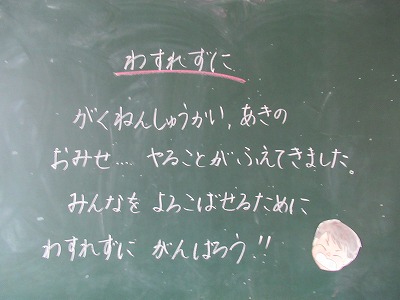 わすれずに
がくねんしゅうかい，あきの
おみせ.... やることがふえてきました。
みんなを よろこばせるために
わすれずに がんばろう!!